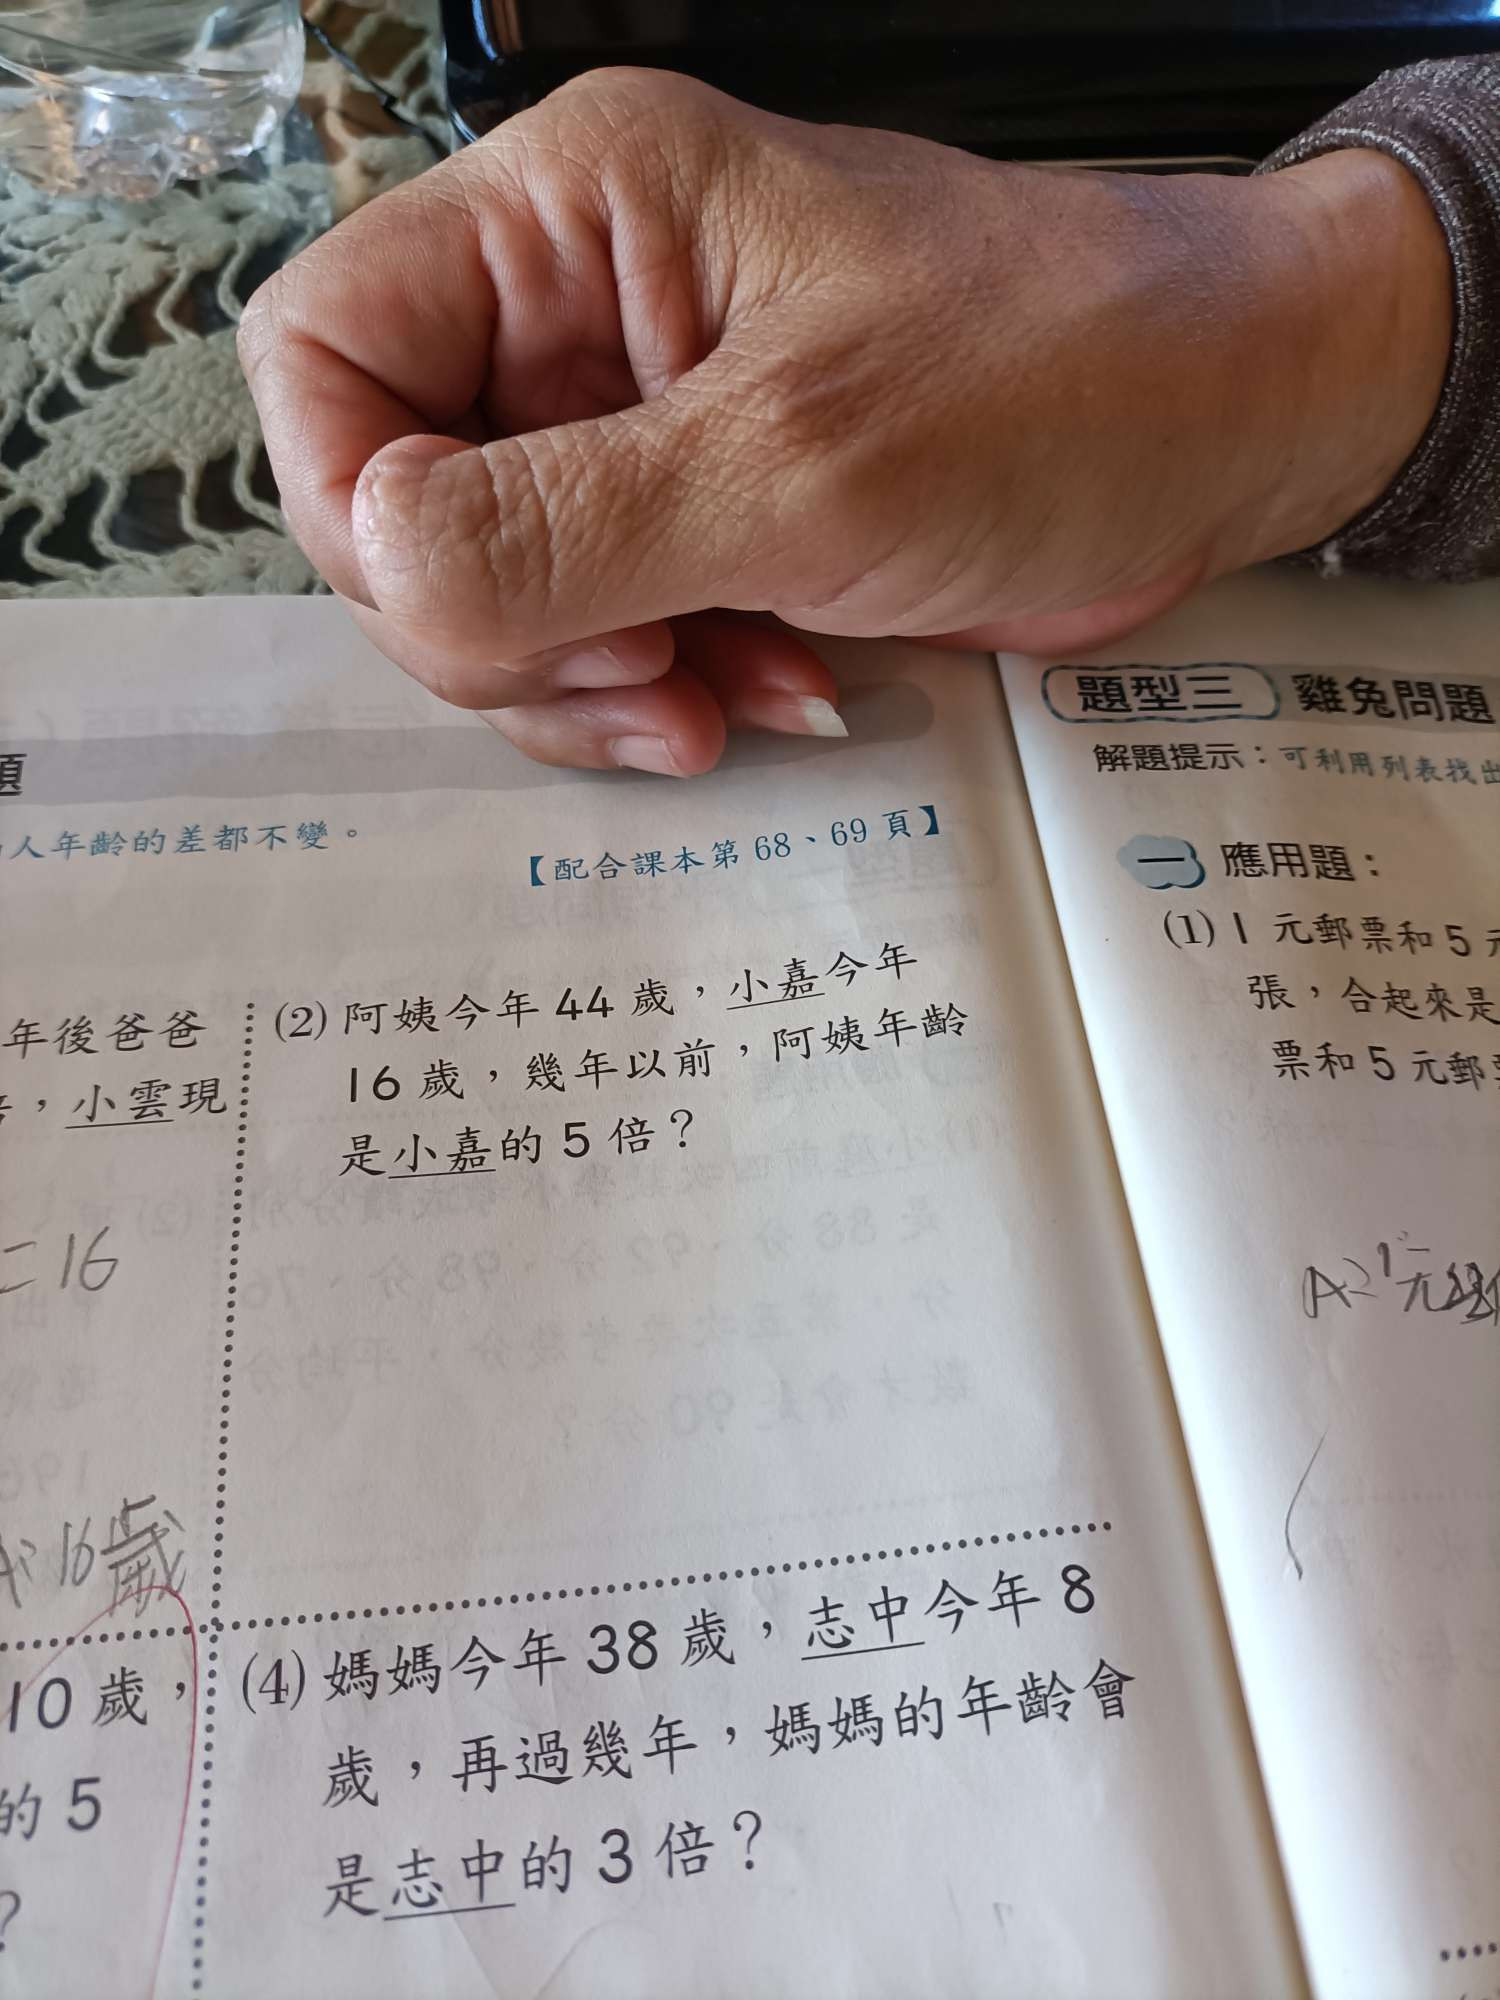 題
人年齡的差都不變。
【配合課本第 68、69 頁】
年後爸爸
，小雲現
= 16
A: 16歲
(2) 阿姨今年 44 歲，小嘉今年
16 歲，幾年以前，阿姨年齡
是小嘉的 5 倍？
10 歲，
的 5
?
(4) 媽媽今年 38 歲，志中今年 8
歲，再過幾年，媽媽的年齡會
是志中的 3 倍？
題型三 雞兔問題
解題提示：可利用列表找出
一 應用題：
(1) 1 元郵票和 5 元
張，合起來是
票和 5 元郵票
A: 1元